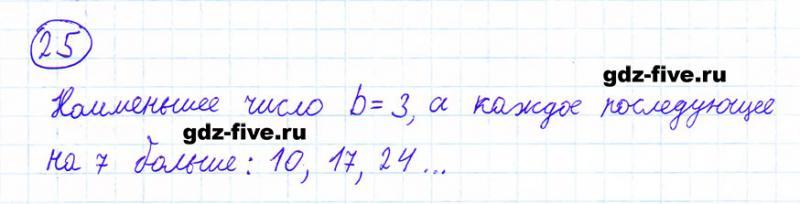 25
gdz-five.ru
Наименьшее число b=3, а каждое последующее
gdz-five.ru
на 7 больше: 10, 17, 24...